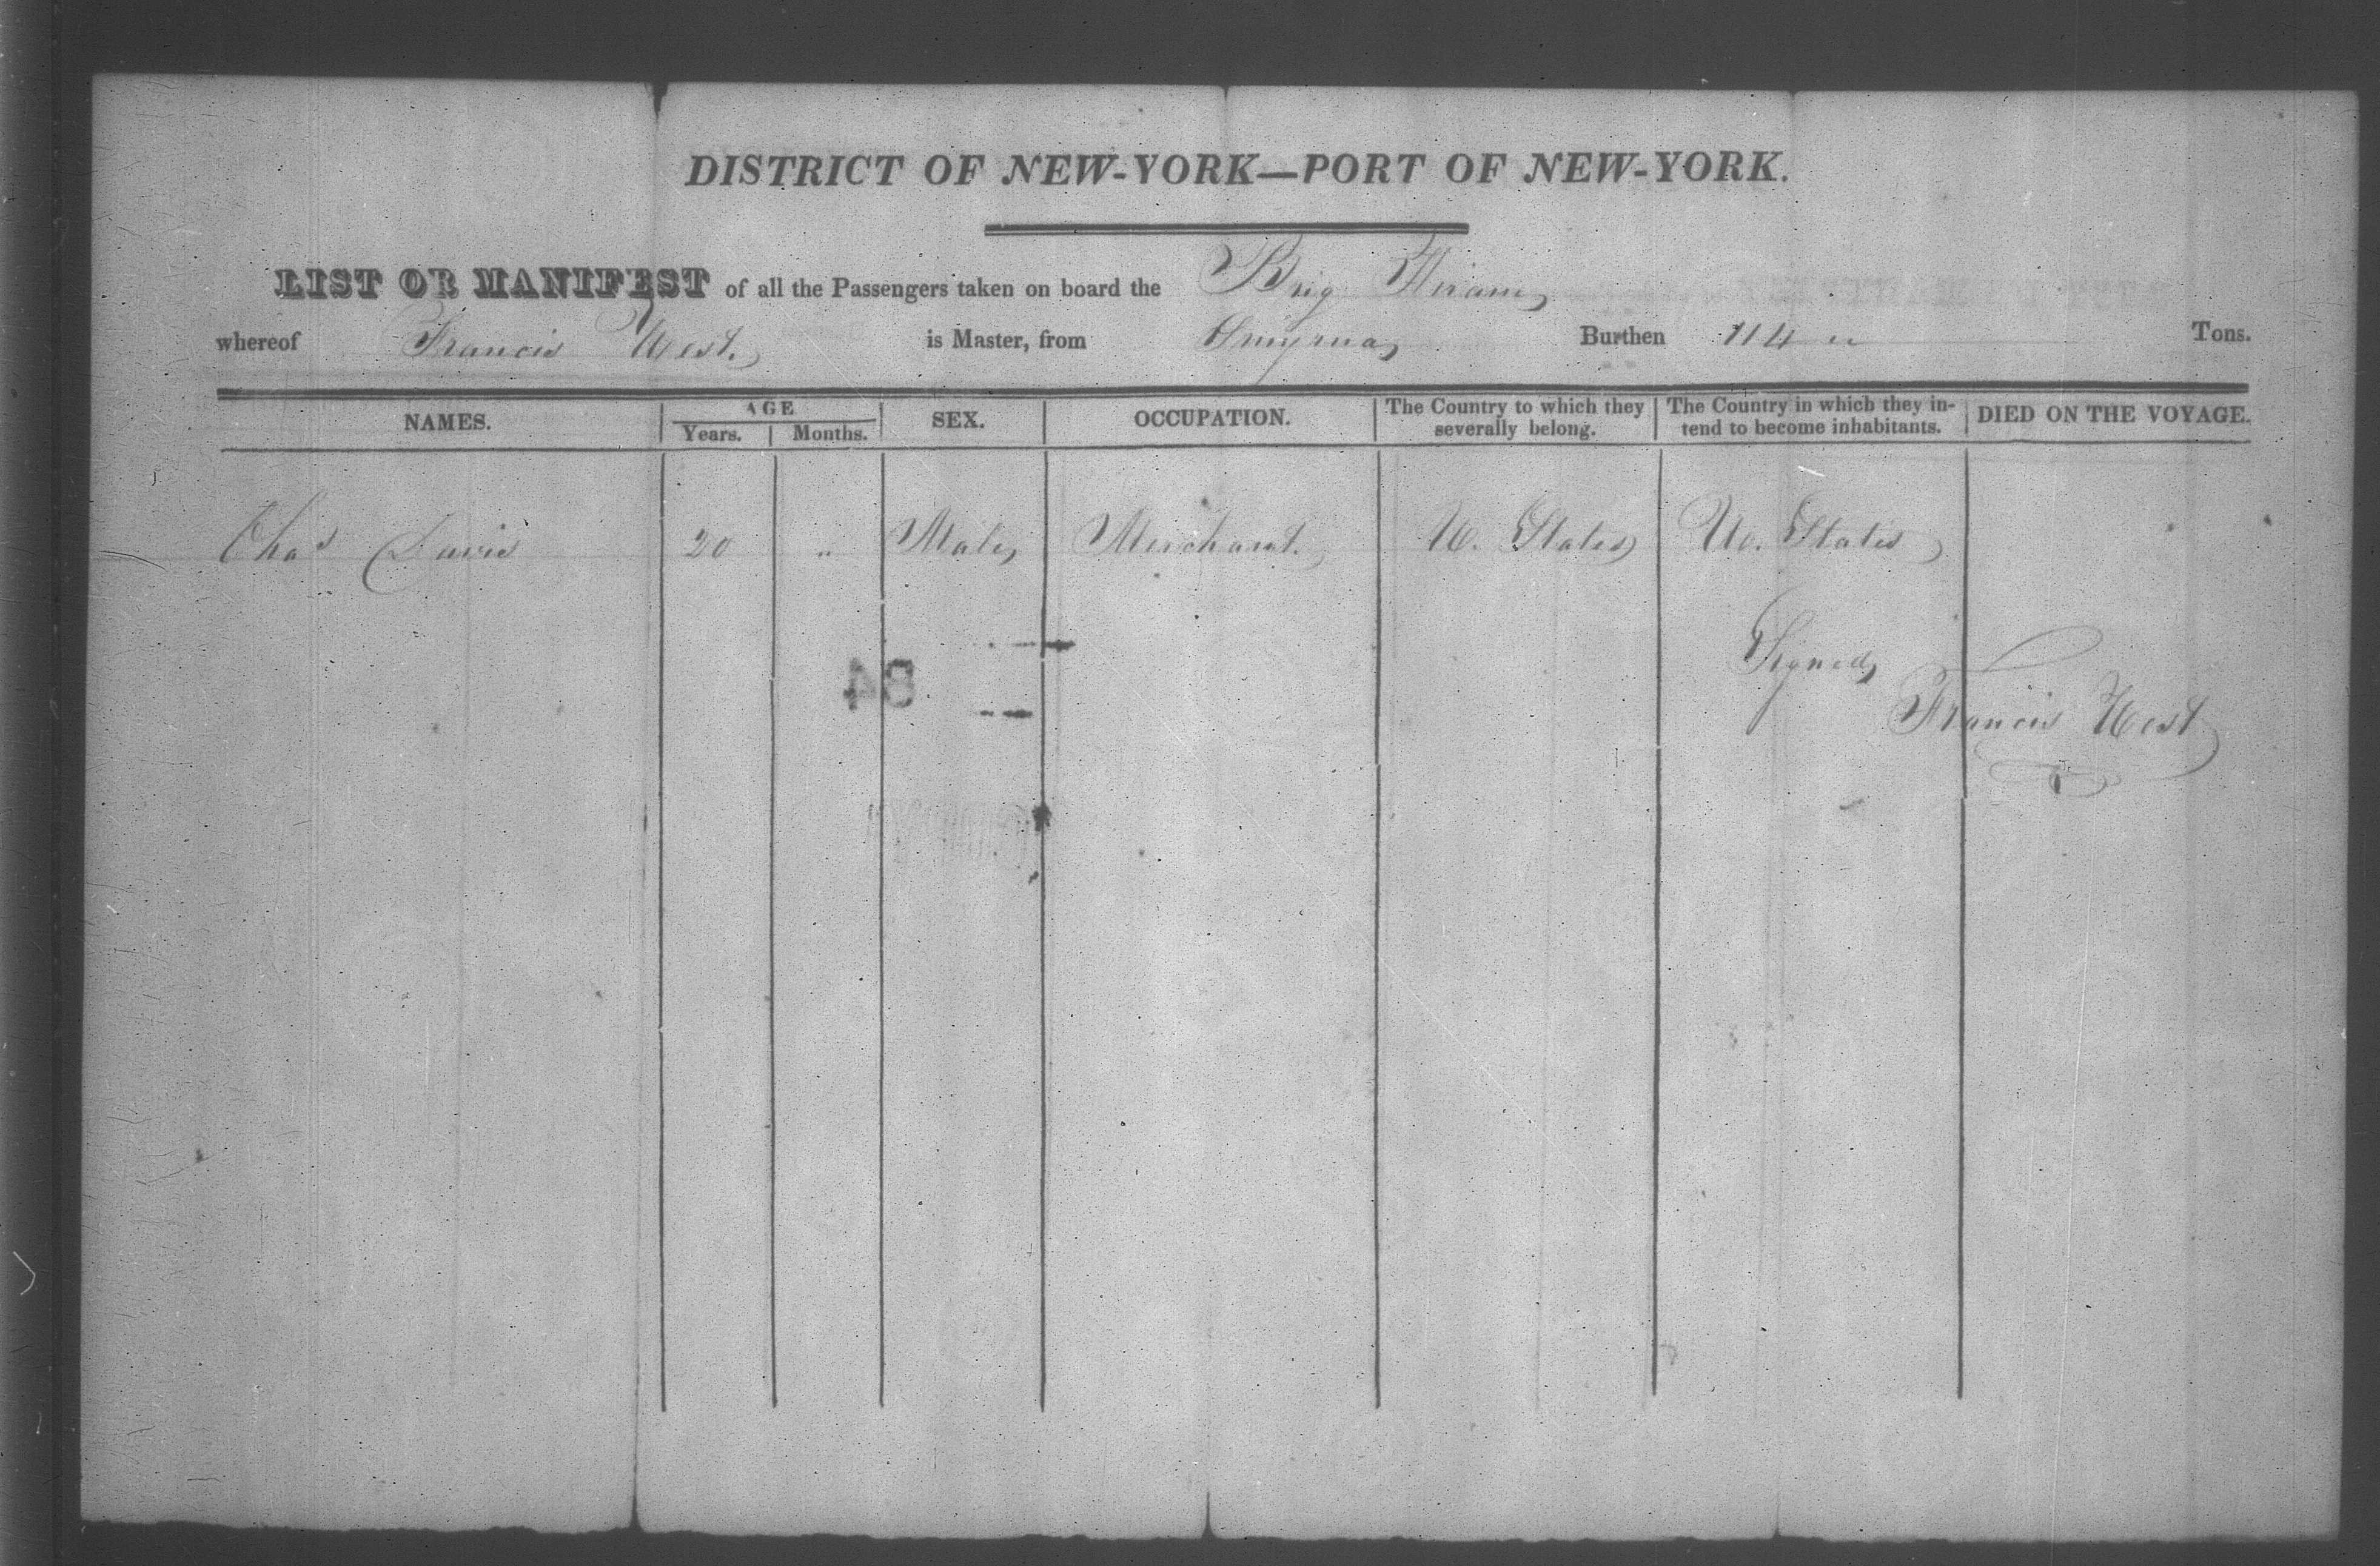 DISTRICT OF NEW-YORK—PORT OF NEW-YORK.
LIST OR MANIFEST of all the Passengers taken on board the Brig Hiram
whereof Francis West. is Master, from Smyrna Burthen 114 " Tons.
NAMES. AGE Years. Months. SEX. OCCUPATION. The Country to which they severally belong. The Country in which they intend to become inhabitants. DIED ON THE VOYAGE.
Chas Davis 20 " Male Merchant. U. States U. States
Signed
Francis West
84